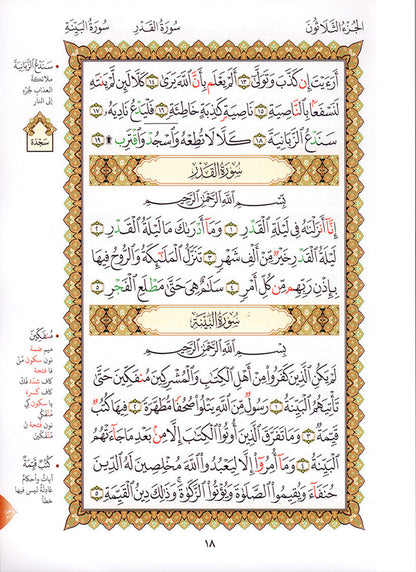 الجُزءُ الثَّلَاثُونَ سُورَةُ القَدْرِ سُورَةُ البَيِّنَةِ
أَرَءَيْتَ إِن كَذَّبَ وَتَوَلَّىٰٓ ١٣ أَلَمْ يَعْلَم بِأَنَّ ٱللَّهَ يَرَىٰ ١٤ كَلَّا لَئِن لَّمْ يَنتَهِ
لَنَسْفَعًۢا بِٱلنَّاصِيَةِ ١٥ نَاصِيَةٍ كَٰذِبَةٍ خَاطِئَةٍ ١٦ فَلْيَدْعُ نَادِيَهُۥ ١٧
سَنَدْعُ ٱلزَّبَانِيَةَ ١٨ كَلَّا لَا تُطِعْهُ وَٱسْجُدْ وَٱقْتَرِب ۩ ١٩
سُورَةُ القَدْرِ
بِسْمِ ٱللَّهِ ٱلرَّحْمَٰنِ ٱلرَّحِيمِ
إِنَّآ أَنزَلْنَٰهُ فِى لَيْلَةِ ٱلْقَدْرِ ١ وَمَآ أَدْرَىٰكَ مَا لَيْلَةُ ٱلْقَدْرِ ٢
لَيْلَةُ ٱلْقَدْرِ خَيْرٌ مِّنْ أَلْفِ شَهْرٍ ٣ تَنَزَّلُ ٱلْمَلَٰٓئِكَةُ وَٱلرُّوحُ فِيهَا
بِإِذْنِ رَبِّهِم مِّن كُلِّ أَمْرٍ ٤ سَلَٰمٌ هِىَ حَتَّىٰ مَطْلَعِ ٱلْفَجْرِ ٥
سُورَةُ البَيِّنَةِ
بِسْمِ ٱللَّهِ ٱلرَّحْمَٰنِ ٱلرَّحِيمِ
لَمْ يَكُنِ ٱلَّذِينَ كَفَرُوا۟ مِنْ أَهْلِ ٱلْكِتَٰبِ وَٱلْمُشْرِكِينَ مُنفَكِّينَ حَتَّىٰ
تَأْتِيَهُمُ ٱلْبَيِّنَةُ ١ رَسُولٌ مِّنَ ٱللَّهِ يَتْلُوا۟ صُحُفًا مُّطَهَّرَةً ٢ فِيهَا كُتُبٌ
قَيِّمَةٌ ٣ وَمَا تَفَرَّقَ ٱلَّذِينَ أُوتُوا۟ ٱلْكِتَٰبَ إِلَّا مِنۢ بَعْدِ مَا جَآءَتْهُمُ
ٱلْبَيِّنَةُ ٤ وَمَآ أُمِرُوٓا۟ إِلَّا لِيَعْبُدُوا۟ ٱللَّهَ مُخْلِصِينَ لَهُ ٱلدِّينَ
حُنَفَآءَ وَيُقِيمُوا۟ ٱلصَّلَوٰةَ وَيُؤْتُوا۟ ٱلزَّكَوٰةَ ۚ وَذَٰلِكَ دِينُ ٱلْقَيِّمَةِ ٥
سَنَدْعُ الزَّبَانِيَةَ
ملائكة
العذاب لجره
إلى النار
سَجْدَة
مُنفَكِّينَ
ميم ضمة
نون سكون مُنْ
فا فتحة
كاف شدة فَكْ
كاف كسرة
يا سكون كِي
مُنفَكِّي
نون فتحة نَ
مُنفَكِّينَ
كُتُبٌ قَيِّمَةٌ
آيات وأحكام
عادلة ليس فيها
خطأ
١٨